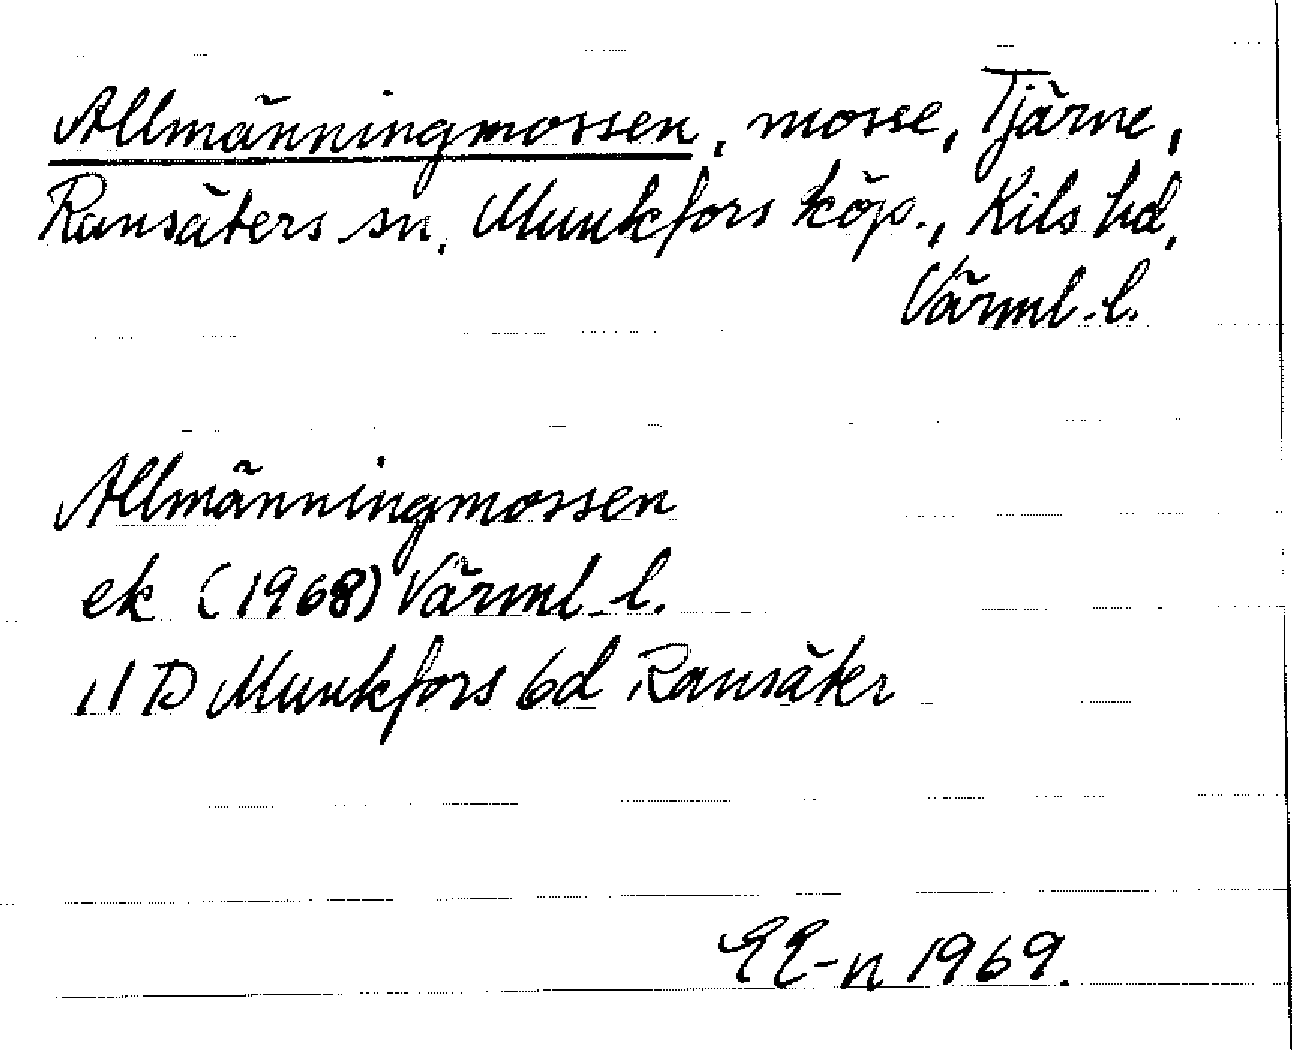 Allmänningmossen, mosse, Tjärne,
Ransäters sn, Munkfors köp., Kils hd,
Värml. l.
Allmänningmossen
ek (1968) Värml. l.
11 D Munkfors 6d Ransäter
EE-n 1969.